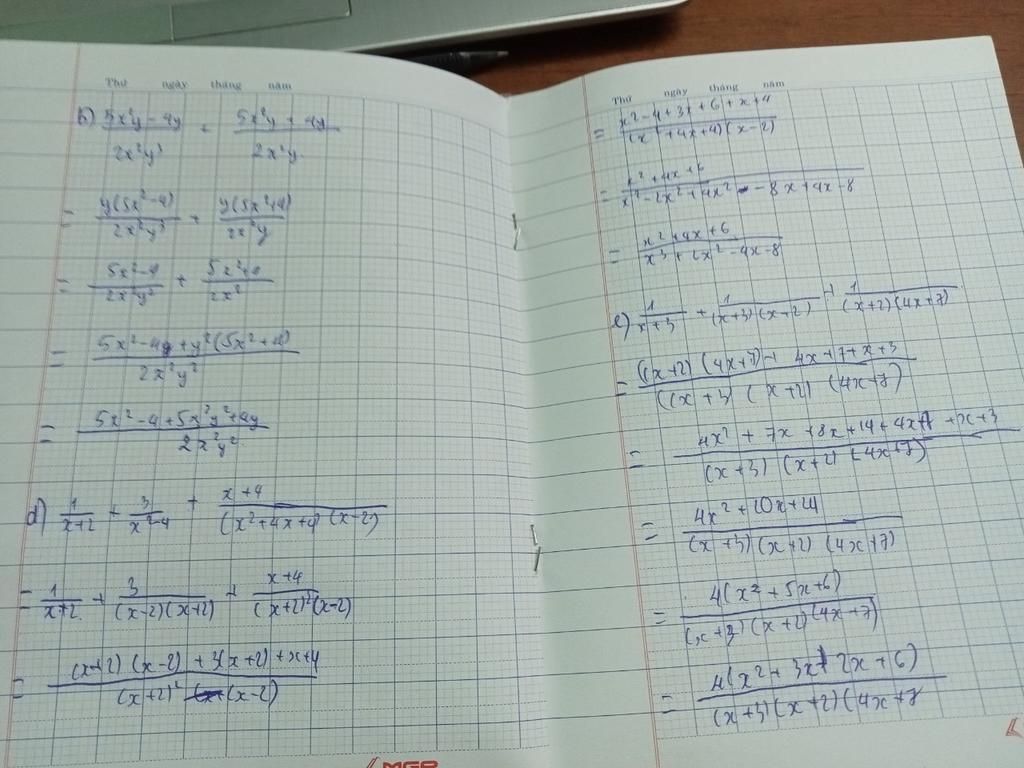 Thứ ngày tháng năm
b) (5x²y - 4y)/(2x²y³) + (5x²y + 4y)/(2x²y)
= y(5x² - 4)/(2x²y³) + y(5x² + 4)/(2x²y)
= (5x² - 4)/(2x²y²) + (5x² + 4)/(2x²)
= (5x² - 4y + y²(5x² + 4))/(2x²y²)
= (5x² - 4 + 5x²y² + 4y)/(2x²y²)
d) 1/(x+2) + 3/(x²-4) + (x+4)/((x²+4x+4)(x-2))
= 1/(x+2) + 3/((x-2)(x+2)) + (x+4)/((x+2)²(x-2))
= ((x+2)(x-2) + 3(x+2) + x+4)/((x+2)²(x-2))
MGP
Thứ ngày tháng năm
= (x² - 4 + 3x + 6 + x + 4)/((x²+4x+4)(x-2))
= (x² + 4x + 6)/(x³ - 2x² + 4x² - 8x + 4x - 8)
= (x² + 4x + 6)/(x³ + 2x² - 4x - 8)
e) 1/(x+3) + 1/((x+3)(x+2)) + 1/((x+2)(4x+7))
= ((x+2)(4x+7) + 4x+7+x+3)/((x+3)(x+2)(4x+7)
= (4x² + 7x + 8x + 14 + 4x+7 + x+3)/((x+3)(x+2)(4x+7))
= (4x² + 20x + 24)/((x+3)(x+2)(4x+7))
= 4(x² + 5x + 6)/((x+3)(x+2)(4x+7))
= 4(x² + 3x + 2x + 6)/((x+3)(x+2)(4x+7